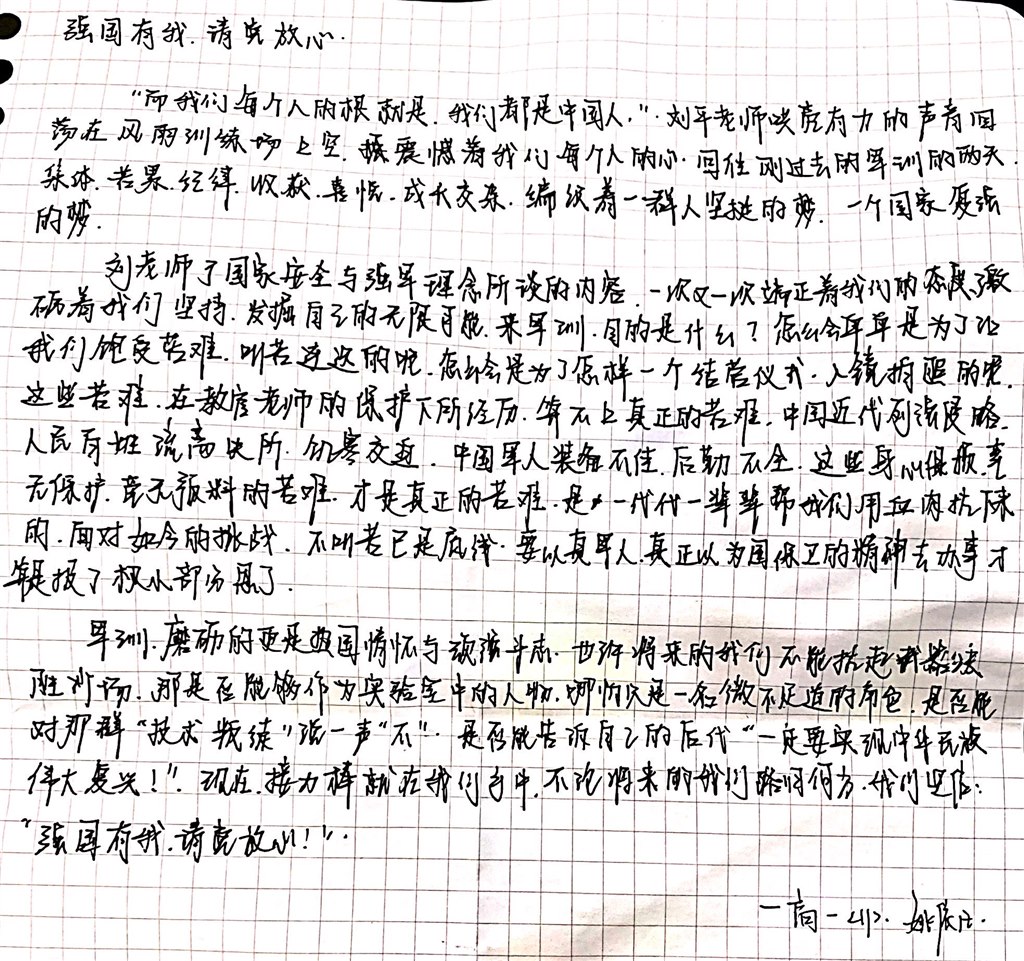 强国有我.请党放心.
"而我们每个人的根就是.我们都是中国人."刘平老师洪亮有力的声音回
荡在风雨训练场上空.震憾着我们每个人的心.回住刚过去的军训的两天.
集体.苦累.经纬.收获.喜悦.成长交杂.编织着一群人坚挺的梦.一个国家复强
的梦.
刘老师了国家安全与强军理念所谈的内容.一次又一次端正着我们的态度激
砺着我们坚持.发掘自己的无限可能.来军训.目的是什么?怎么会单单是为了让
我们饱受苦难.叫苦连迭的呢.怎么会是为了怎样一个结营仪式.入镜拍照的呢.
这些苦难.在教官老师的保护下所经历.算不上真正的苦难.中国近代列强侵略.
人民百姓流离失所.饥寒交迫.中国军人装备不佳.后勤不全.这些身心俱疲毫
无保护.毫无预料的苦难.才是真正的苦难.是一代代一辈辈帮我们用血肉抗下来
的.面对如今的挑战.不叫苦已是底线.要以真军人.真正以为国保卫的精神去办事才
算是报了极小部分恩了.
军训.磨砺的更是爱国情怀与顽强斗志.也许将来的我们不能抗起武器决
胜沙场.那是否能够作为实验室中的人物.哪怕只是一名微不足道的角色.是否能
对那群"技术叛徒"说一声"不".是否能告诉自己的后代"一定要实现中华民族
伟大复兴!".现在.接力棒就在我们手中.不论将来的我们路归何方.我们坚信:
"强国有我.请党放心!".
一高一